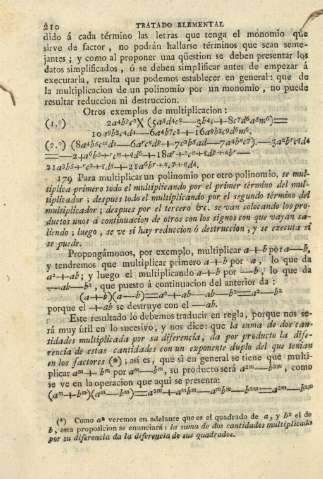 210 TRATADO ELEMENTAL
dido á cada término las letras que tenga el monomio que
sirve de factor, no podrán hallarse términos que sean seme-
jantes; y como al proponer una qüestion se deben presentar los
datos simplificados, ó se deben simplificar antes de empezar á
executarla, resulta que podemos establecer en general: que de
la multiplicacion de un polinomio por un monomio, no puede
resultar reduccion ni destruccion.
Otros exemplos de multiplicacion:
(1.º)
(2.º)
179 Para multiplicar un polinomio por otro polinomio, se mul-
tiplica primero todo el multiplicando por el primer término del mul-
tiplicador; despues todo el multiplicando por el segundo término del
multiplicador; despues por el tercero &c. se van colocando los pro-
ductos unos á continuacion de otros con los signos con que vayan sa-
liendo; luego, se ve si hay reduccion ó destruccion, y se executa si
se puede.
Propongámonos, por exemplo, multiplicar a+b por a—b,
y tendremos que multiplicar primero a+b por a, lo que da
a²+ab; y luego el multiplicando a+b por —b, lo que da
—ab—b², que puesto á continuacion del anterior da:
(a+b)(a—b)=a²+ab—ab—b²=a²—b²
porque el +ab se destruye con el —ab.
Este resultado lo debemos traducir en regla, porque nos se-
rá muy útil en lo sucesivo, y nos dice: que la suma de dos can-
tidades multiplicada por su diferencia, da por producto la dife-
rencia de estas cantidades con un exponente duplo del que tenian
en los factores (*), así es, que si en general se tiene que multi-
plicar aᵐ+bᵐ por aᵐ—bᵐ, su producto será a²ᵐ—b²ᵐ, como
se ve en la operacion que aquí se presenta:
(aᵐ+bᵐ)(aᵐ—bᵐ)=a²ᵐ+aᵐbᵐ—aᵐbᵐ—b²ᵐ=a²ᵐ—b²ᵐ
(*) Como a² veremos en adelante que es el quadrado de a, y b² el de
b, esta proposicion se enunciará: la suma de dos cantidades multiplicada
por su diferencia da la diferencia de sus quadrados.